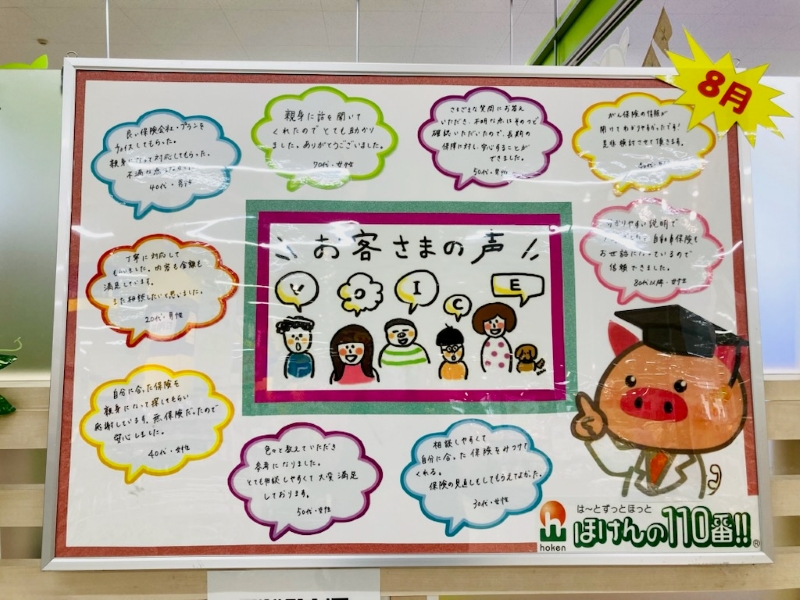 8月
良い保険会社・プランを
チョイスしてもらった。
親身になって対応してもらった。
不満な点しなさい
40代・男性
親身に話を聞いて
くれたのでとても助かり
ました。ありがとうございました。
70代・女性
さまざまな質問にお答え
いただき、不明な点はその都度
確認いただいたので、長期の
保障に対し安心することが
できました。
50代・男性
がん保険の情報が
聞けてわかりやすかったです!
是非検討させて頂きます。
わかりやすい説明で
自動車保険も
お世話になっているので
信頼できました。
80代以降・女性
丁寧に対応して
もらいました。内容も金額も
満足しています。
また相談したいと思いました。
20代・男性
\\ お客さまの声 //
VOICE
自分に合った保険を
親身になって探してもらい
感謝しています。無保険だったので
安心しました。
40代・女性
色々と教えていただき
参考になりました。
とても相談しやすくて大変満足
しております。
50代・女性
相談しやすくて
自分に合った保険をみつけて
くれる。
保険の見直しもしてもらえてよかった。
30代・女性
は〜とずっとほっと
h
hoken
ほけんの110番!!®